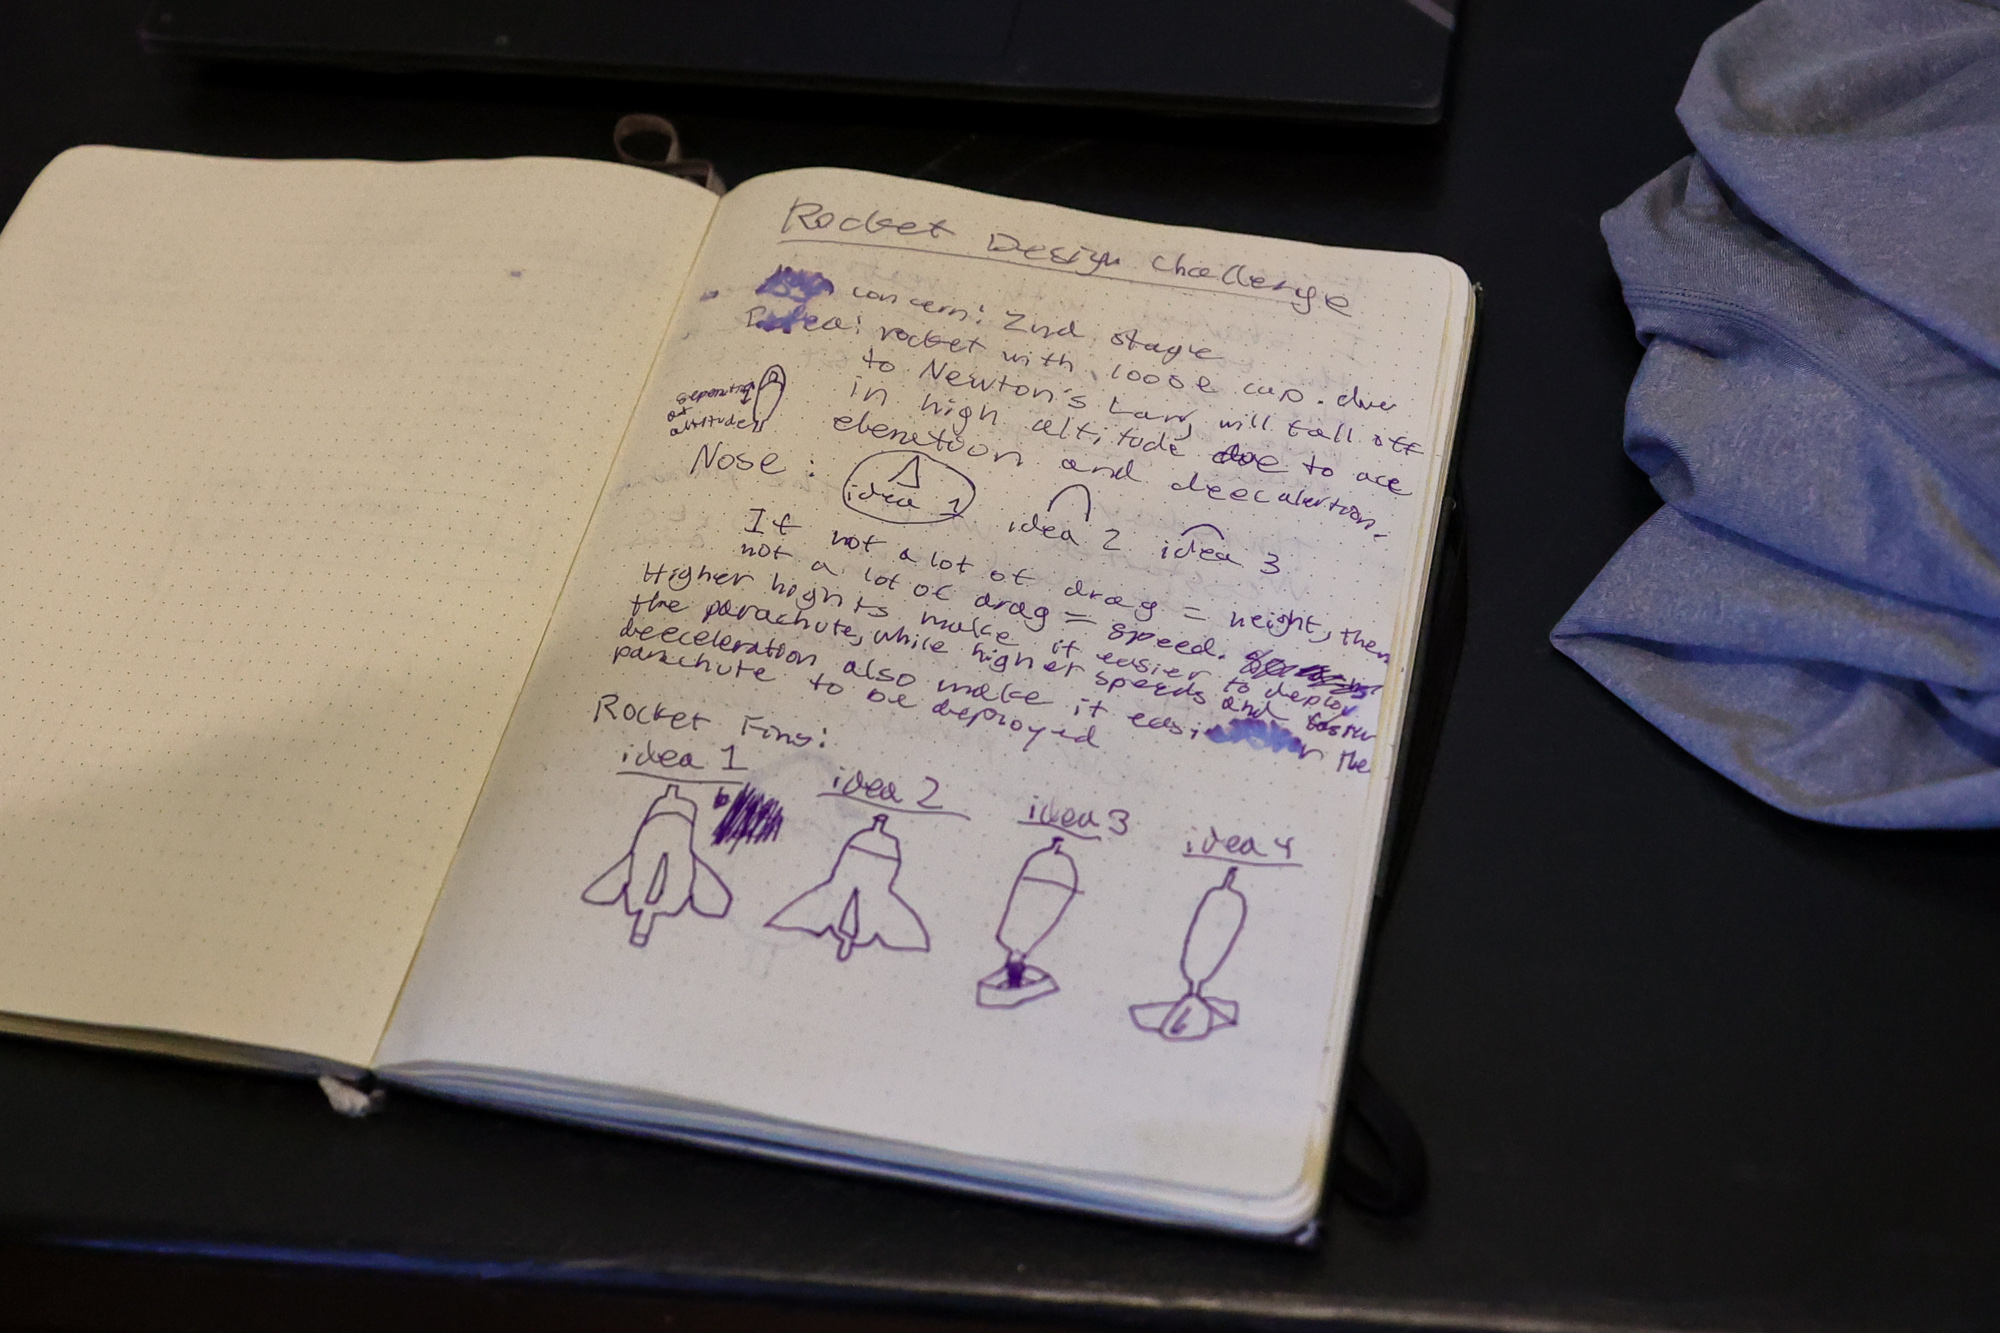 Rocket Design Challenge
concern: 2nd stage
Idea: rocket with loose cap. due
to Newton's Law, will fall off
in high altitude due to acc
eberation and deecalertion.
Separating
at
altitude
Nose:
idea 1 idea 2 idea 3
If not a lot of drag = height, then
not a lot of drag = speed.
Higher hights make it easier to deploy
the parachute, while higher speeds and faster
deeceleration also make it easi r the
parachute to be deployed
Rocket Fins:
idea 1 idea 2 idea 3 idea 4